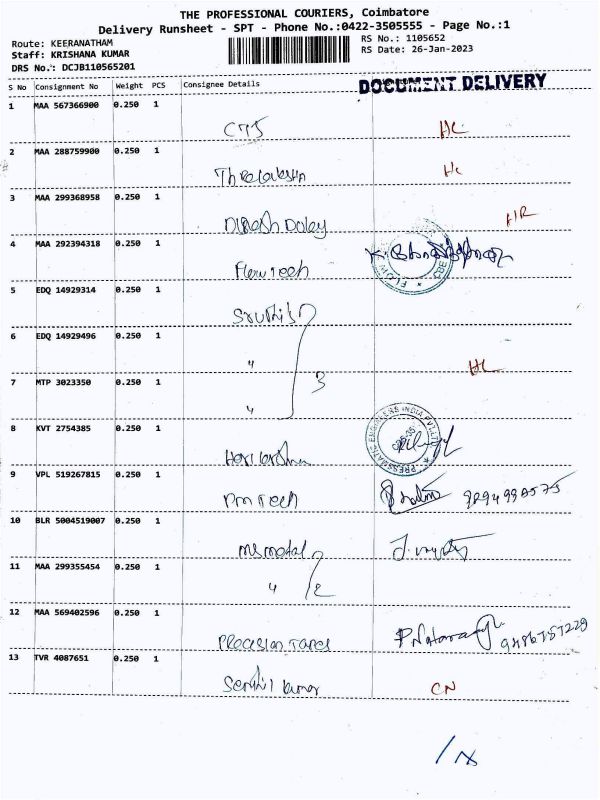 THE PROFESSIONAL COURIERS, Coimbatore
Delivery Runsheet - SPT - Phone No.:0422-3505555 - Page No.:1
Route: KEERANATHAM
Staff: KRISHANA KUMAR
DRS No.: DCJB110565201
RS No.: 1105652
RS Date: 26-Jan-2023
S No Consignment No Weight PCS Consignee Details
DOCUMENT DELIVERY
1 MAA 567366900 0.250 1
CTS HC
2 MAA 288759900 0.250 1
HC
3 MAA 299368958 0.250 1
Dinesh Doley HR
4 MAA 292394318 0.250 1
Flow Tech
5 EDQ 14929314 0.250 1
6 EDQ 14929496 0.250 1
"
3 HC
7 MTP 3023350 0.250 1
"
8 KVT 2754385 0.250 1
PRESSMATIC ENGINEERS INDIA PVT.LTD
9 VPL 519267815 0.250 1
Pm Tech
10 BLR 5004519007 0.250 1
Ms metal
11 MAA 299355454 0.250 1
" 2
12 MAA 569402596 0.250 1
Precision Tapes
13 TVR 4087651 0.250 1
Senthil Kumar CN